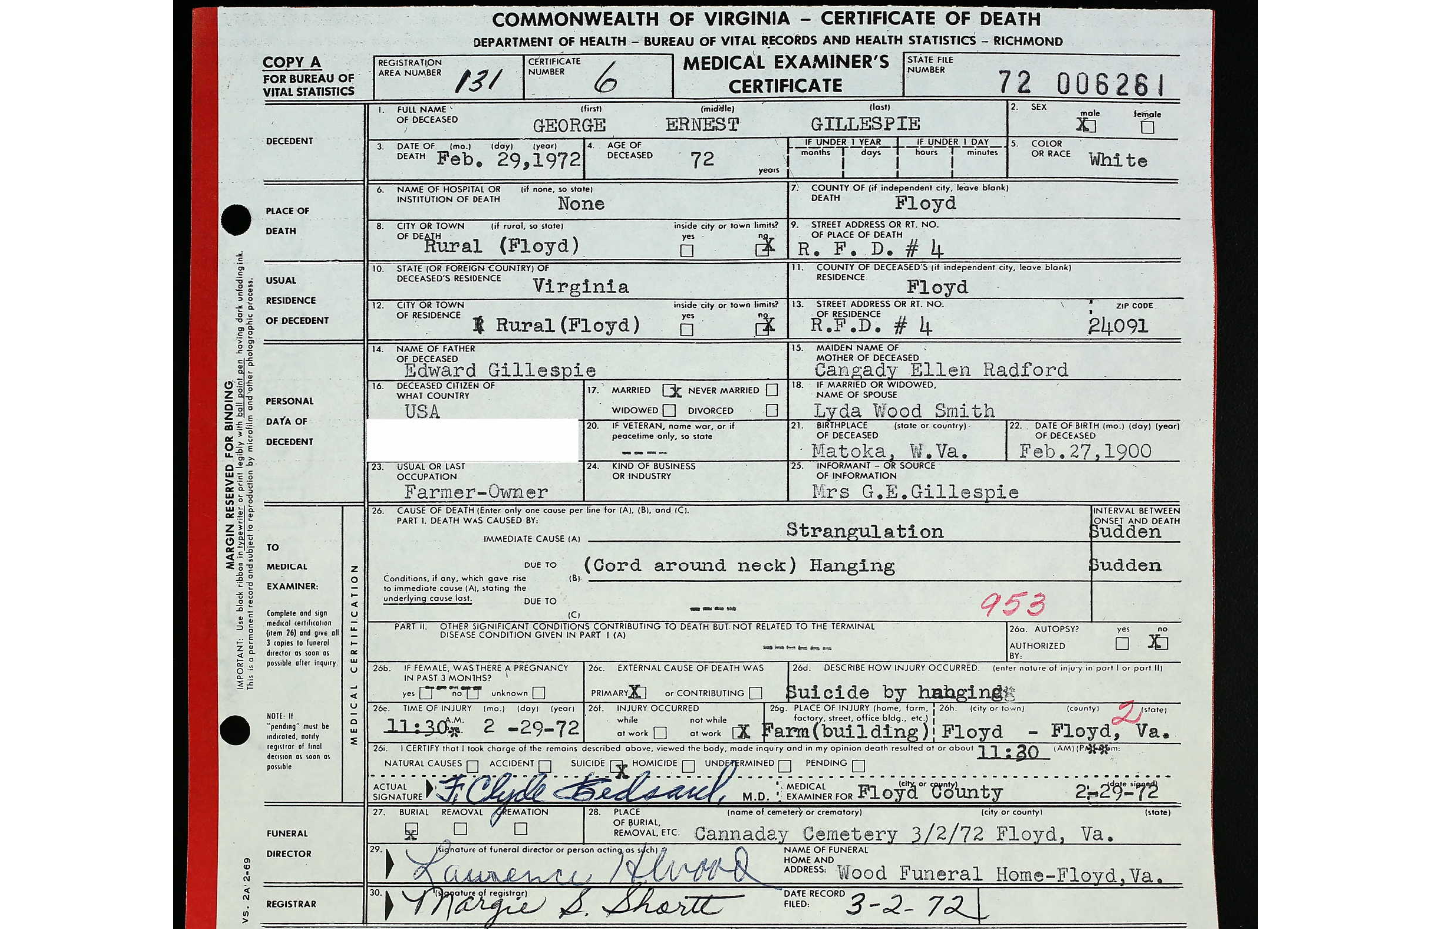 COMMONWEALTH OF VIRGINIA – CERTIFICATE OF DEATH
DEPARTMENT OF HEALTH – BUREAU OF VITAL RECORDS AND HEALTH STATISTICS – RICHMOND
COPY A
FOR BUREAU OF
VITAL STATISTICS
REGISTRATION
AREA NUMBER 131
CERTIFICATE
NUMBER 6
MEDICAL EXAMINER'S
CERTIFICATE
STATE FILE
NUMBER
72 006261
DECEDENT
1. FULL NAME (first) (middle) (last)
OF DECEASED GEORGE ERNEST GILLESPIE
2. SEX male female
X
3. DATE OF (mo.) (day) (year)
DEATH Feb. 29,1972
4. AGE OF
DECEASED 72 years
IF UNDER 1 YEAR IF UNDER 1 DAY
months days hours minutes
5. COLOR
OR RACE White
PLACE OF
DEATH
6. NAME OF HOSPITAL OR (if none, so state)
INSTITUTION OF DEATH None
7. COUNTY OF (if independent city, leave blank)
DEATH Floyd
8. CITY OR TOWN (if rural, so state) inside city or town limits?
OF DEATH Rural (Floyd) yes no X
9. STREET ADDRESS OR RT. NO.
OF PLACE OF DEATH
R. F. D. # 4
USUAL
RESIDENCE
OF DECEDENT
10. STATE (OR FOREIGN COUNTRY) OF
DECEASED'S RESIDENCE Virginia
11. COUNTY OF DECEASED'S (if independent city, leave blank)
RESIDENCE Floyd
12. CITY OR TOWN inside city or town limits?
OF RESIDENCE Rural(Floyd) yes no X
13. STREET ADDRESS OR RT. NO. ZIP CODE
OF RESIDENCE
R.F.D. # 4 24091
PERSONAL
DATA OF
DECEDENT
14. NAME OF FATHER
OF DECEASED
Edward Gillespie
15. MAIDEN NAME OF
MOTHER OF DECEASED
Cangady Ellen Radford
16. DECEASED CITIZEN OF
WHAT COUNTRY
USA
17. MARRIED X NEVER MARRIED
WIDOWED DIVORCED
18. IF MARRIED OR WIDOWED,
NAME OF SPOUSE
Lyda Wood Smith
20. IF VETERAN, name war, or if
peacetime only, so state
----
21. BIRTHPLACE (state or country)
OF DECEASED
Matoka, W.Va.
22. DATE OF BIRTH (mo.) (day) (year)
OF DECEASED
Feb.27,1900
23. USUAL OR LAST
OCCUPATION
Farmer-Owner
24. KIND OF BUSINESS
OR INDUSTRY
25. INFORMANT – OR SOURCE
OF INFORMATION
Mrs G.E.Gillespie
TO
MEDICAL
EXAMINER:
Complete and sign
medical certification
(item 26) and give all
3 copies to funeral
director as soon as
possible after inquiry.
NOTE: If
"pending" must be
indicated, notify
registrar of final
decision as soon as
possible
MEDICAL CERTIFICATION
26. CAUSE OF DEATH (Enter only one cause per line for (A), (B), and (C).
PART I. DEATH WAS CAUSED BY:
IMMEDIATE CAUSE (A) Strangulation
INTERVAL BETWEEN
ONSET AND DEATH
Sudden
DUE TO (B) (Cord around neck) Hanging Sudden
Conditions, if any, which gave rise
to immediate cause (A), stating the
underlying cause last.
DUE TO
(C) ----
953
PART II. OTHER SIGNIFICANT CONDITIONS CONTRIBUTING TO DEATH BUT NOT RELATED TO THE TERMINAL
DISEASE CONDITION GIVEN IN PART I (A)
------
26a. AUTOPSY? yes no
AUTHORIZED X
BY:
26b. IF FEMALE, WAS THERE A PREGNANCY
IN PAST 3 MONTHS?
yes no unknown
26c. EXTERNAL CAUSE OF DEATH WAS
PRIMARY X or CONTRIBUTING
26d. DESCRIBE HOW INJURY OCCURRED. (enter nature of injury in part I or part II)
Suicide by hanging
26e. TIME OF INJURY (mo.) (day) (year)
11:30 A.M. 2 -29-72
26f. INJURY OCCURRED
while not while
at work at work X
26g. PLACE OF INJURY (home, farm,
factory, street, office bldg., etc.)
Farm(building)
26h. (city or town) (county) (state)
2
Floyd - Floyd, Va.
26i. I CERTIFY that I took charge of the remains described above, viewed the body, made inquiry and in my opinion death resulted at or about 11:30 (AM)
NATURAL CAUSES ACCIDENT SUICIDE X HOMICIDE UNDETERMINED PENDING
ACTUAL
SIGNATURE F. Clyde Bedsaul, M.D.
MEDICAL (city or county) (date signed)
EXAMINER FOR Floyd County 2-29-72
FUNERAL
DIRECTOR
27. BURIAL REMOVAL CREMATION
X
28. PLACE (name of cemetery or crematory) (city or county) (state)
OF BURIAL,
REMOVAL, ETC. Cannaday Cemetery 3/2/72 Floyd, Va.
29. (signature of funeral director or person acting as such)
Laurence H Wood
NAME OF FUNERAL
HOME AND
ADDRESS: Wood Funeral Home-Floyd,Va.
REGISTRAR
30. (signature of registrar)
Margie S. Shortt
DATE RECORD
FILED: 3-2-72
MARGIN RESERVED FOR BINDING
IMPORTANT: Use black ribbon in typewriter or print legibly with ball point pen having dark unfading ink.
This is a permanent record and subject to reproduction by microfilm and other photographic process.
VS. 2A 2-69